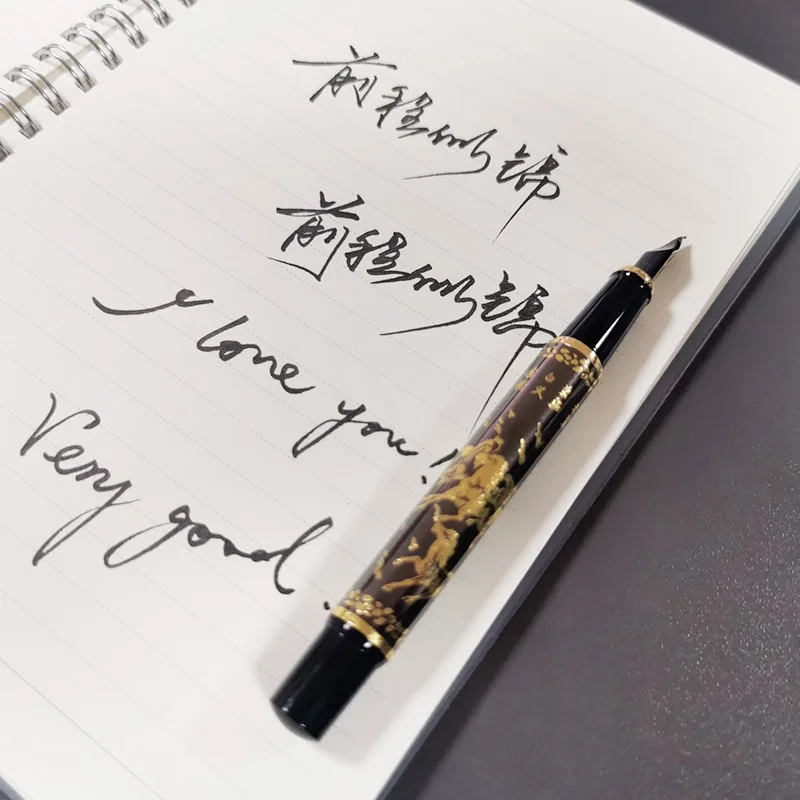 前程似锦
前程似锦
I love you!
Very good.